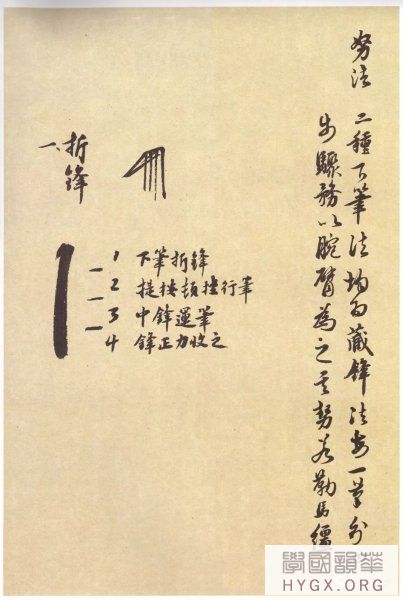 努法 二種下筆法均为藏鋒法
步驟務以腕臂為之其努若勒馬繮
一、折鋒
1 下筆折鋒
2 提按頓挫行筆
3 中鋒運筆
4 鋒正力收之
華韻國學
HYGX.ORG